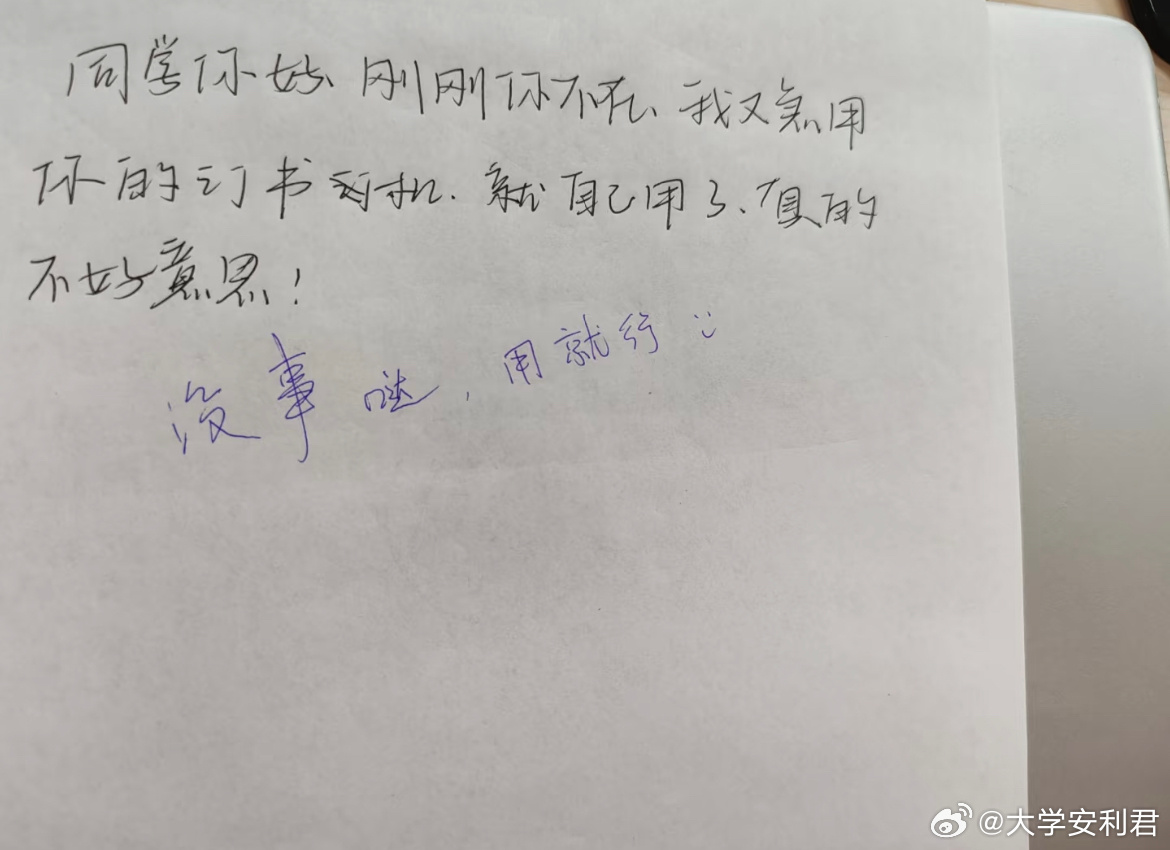 同学你好、刚刚你不在、我又急用
你的订书订机、就自己用了、真的
不好意思!
没事哒,用就行 :)
@大学安利君